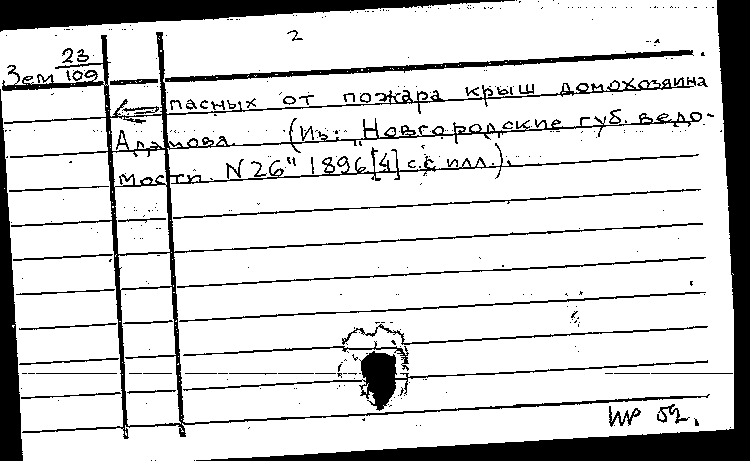 2
Зем 23/109
пасных от пожара крыш домохозяина
Адамова. (Из: "Новгородские губ. ведо-
мости N 26" 1896 [4] с. с илл.).